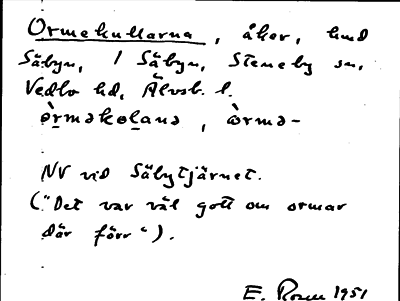 Ormekullarna, åker, hmd
Säbyn, 1 Säbyn, Steneby sn,
Vedbo hd, Älvsb. l.
òrməkolana, òrmə-
NV vid Säbytjärnet.
("Det var väl gott om ormar
där förr").
E. Rosen 1951